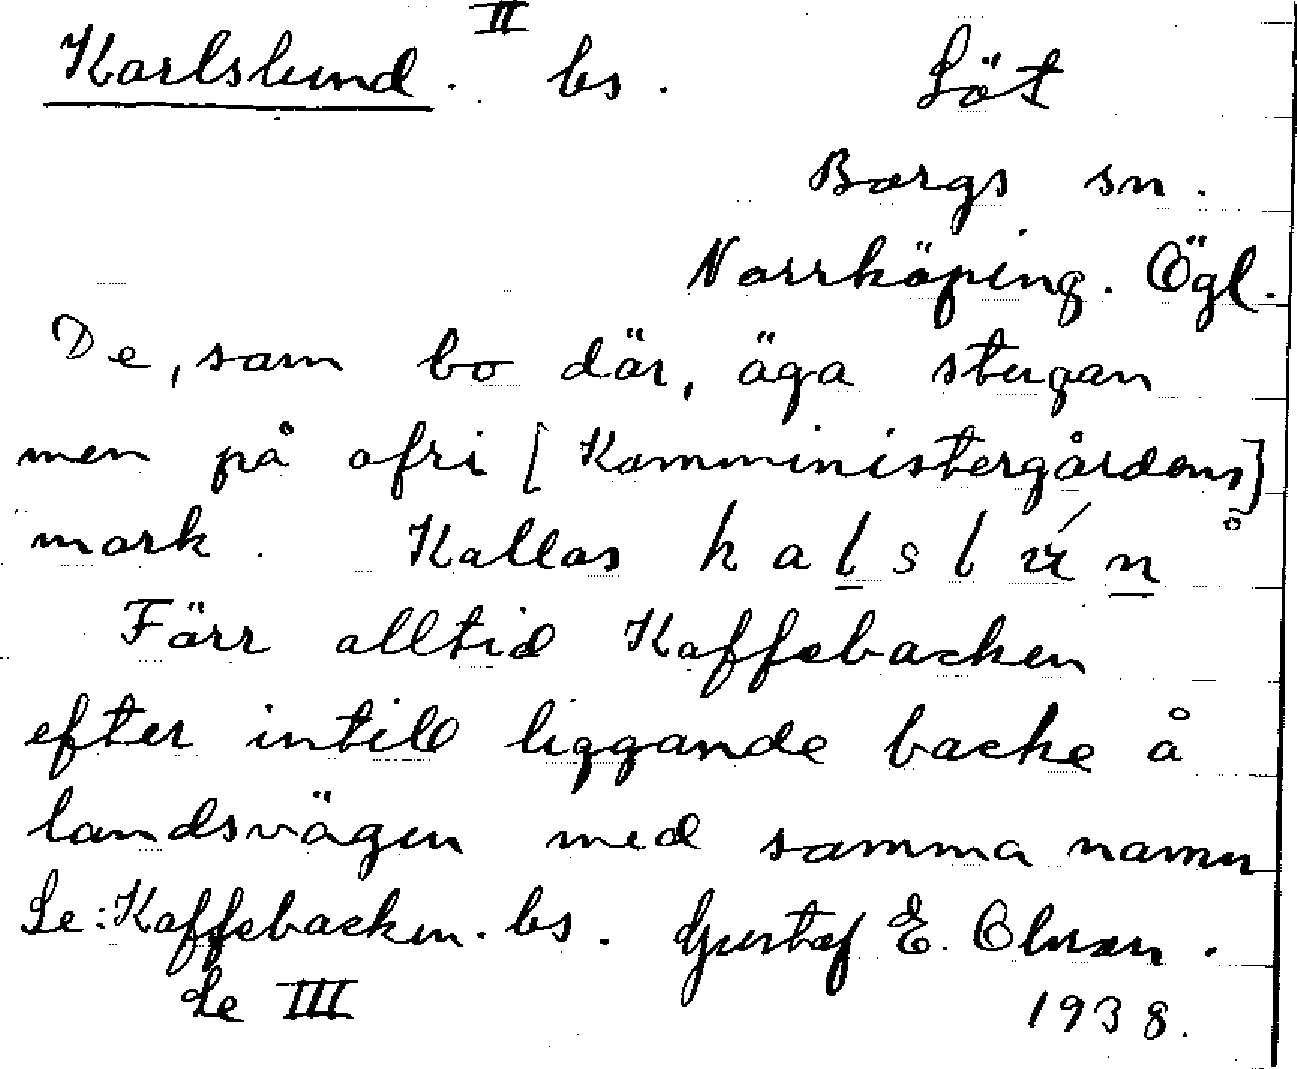 Karlslund. II bs. Löt
Borgs sn.
Norrköping. Ögl.
De, som bo där, äga stugan
men på ofri [Komministergårdens]
mark. Kallas k a l s l ú n
Förr alltid Kaffebacken
efter intill liggande backe å
landsvägen med samma namn
Se: Kaffebacken. bs. Gustaf E. Olsson.
Se III 1938.